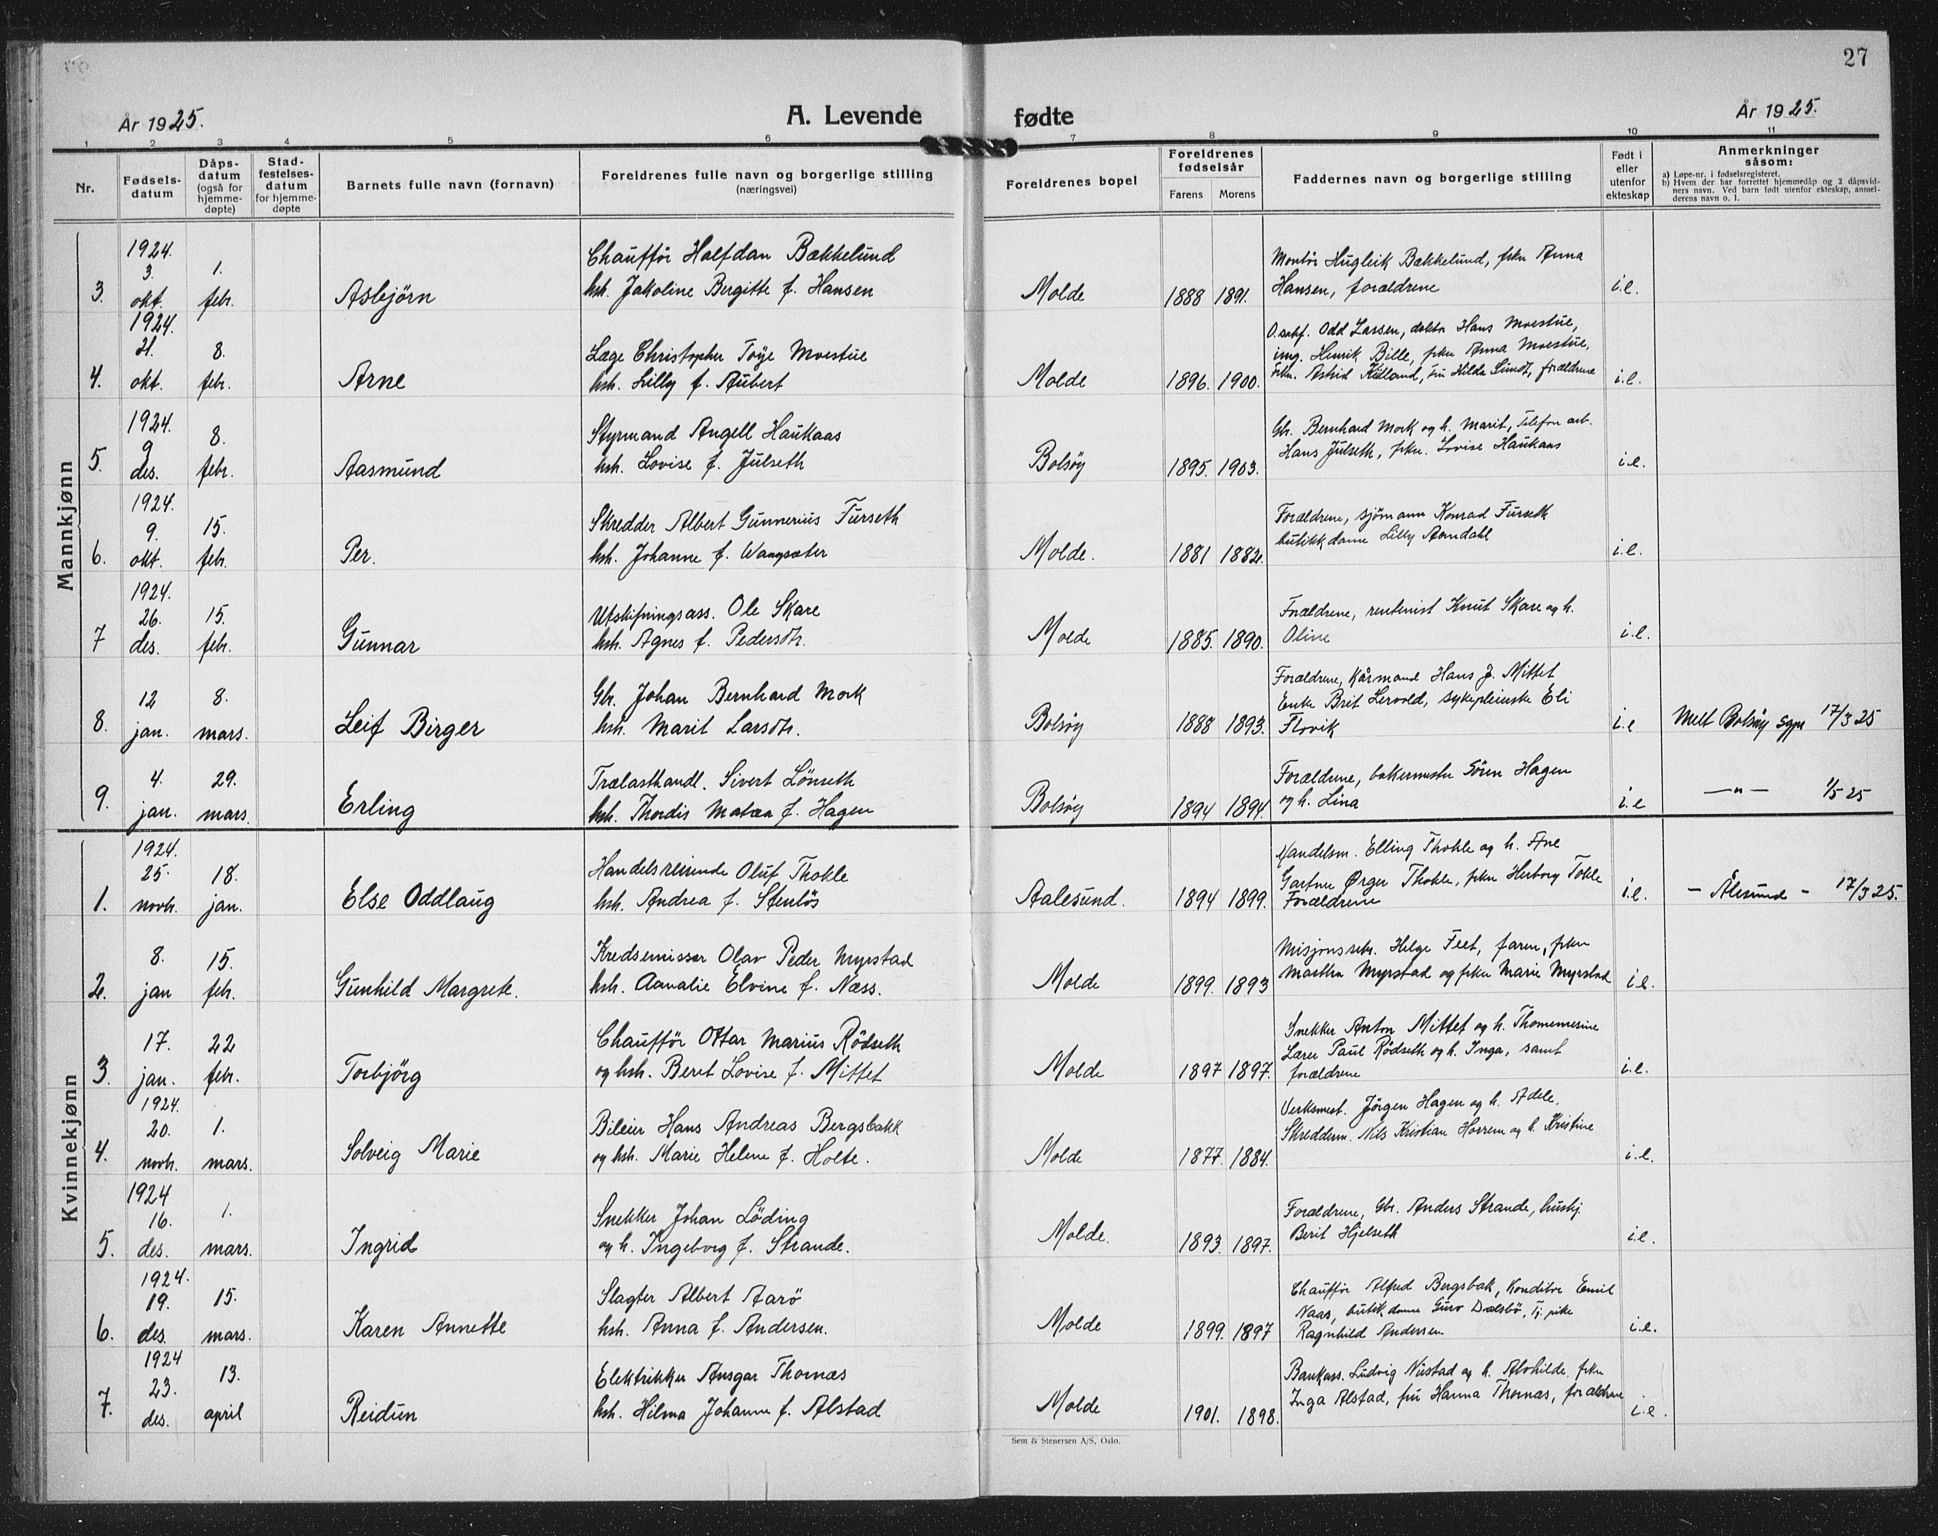 27
År 1925.
A. Levende
fødte
År 1925.
1 2 3 4 5 6 7 8 9 10 11
Nr.
Fødsels-
datum
Dåps-
datum
(også for
hjemme-
døpte)
Stad-
festelses-
datum
for hjemme-
døpte
Barnets fulle navn (fornavn)
Foreldrenes fulle navn og borgerlige stilling
(næringsvei)
Foreldrenes bopel
Foreldrenes
fødselsår
Farens Morens
Faddernes navn og borgerlige stilling
Født i
eller
utenfor
ekteskap
Anmerkninger
såsom:
a) Løpe-nr. i fødselsregisteret.
b) Hvem der har forrettet hjemmedåp og 2 dåpsvid-
ners navn. Ved barn født utenfor ekteskap, anmel-
derens navn o. l.
Mannkjønn
3. 1924. 3. okt. 1. febr. Asbjørn
Chauffør Halfdan Bækkelund
hsh. Jakoline Bergitte f. Hansen
Molde 1888 1891.
Montør Hugleik Bækkelund, pike Anna
Hansen, forældrene
i.e.
4. 1924. 21. okt. 8. febr. Arne
Læge Christopher Töye Moestue
hsh. Lilly f. Aubert
Molde 1896. 1900.
Odd Lassen, doktor Hans Moestue,
ing. Henrik Bille, pike Anna Moestue,
Astrid Kielland, fru Hilda Sundt, forældrene
i.e.
5. 1924. 9 des. 8. febr. Aasmund
Styrmand Angell Haukaas
hsh. Lovise f. Julseth
Bolsøy 1895. 1903.
Gbr. Bernhard Mork og h. Marit, Telefon arb.
Hans Julseth, pike. Lovise Haukaas
i.e.
6. 1924. 9. okt. 15. febr. Per.
Skredder Albert Gunnerius Furseth
hsh. Johanne f. Wangsæter
Molde. 1881 1882.
Forældrene, sjømann Konrad Furseth
butikkdame Lilly Aamdahl
i.e.
7 1924. 26. des. 15. febr. Gunnar
Utskiftningsass. Ole Skare
hsh. Agnes f. Pedersdtr.
Molde 1885. 1890.
Forældrene, rentenist Knut Skare og h.
Oline
i.e.
8. 12 jan. 8. mars. Leif Birger
Gbr. Johan Bernhard Mork
hsh. Marit Larsdtr.
Bolsøy 1888 1893.
Forældrene, Kårmand Hans J. Mittet
Enke Brit Lervold, sykepleierske Eli
Flovik
i.e
Melt Bolsøy sgpr 17/3 25
9. 4. jan. 29. mars. Erling
Trælasthandl. Sivert Lönseth
hsh. Thordis Matæa f. Hagen
Bolsøy 1894 1894.
Forældrene, bakermester Sören Hagen
og h. Lina
i.e
— " — 1/5 25
Kvinnekjønn
1. 1924. 25. novb. 18. jan. Else Oddlaug
Handelsreisende Oluf Thokle
hsh. Andrea f. Stenløs
Aalesund. 1894 1899.
Handelsm. Elling Thokle og h. Ane
Gartner Ørger Thokle, pike Herborg Tokle
Forældrene
i.e.
- Ålesund - 17/3 25.
2. 8. jan 15. feb. Gunhild Margrete.
Kredsemissær Olav Peder Myrstad
hsh. Aanalie Elvine f. Næss.
Molde 1899. 1893
Misjonssekr. Helge Feet, faren, pike
Martha Myrstad og pike Marie Myrstad
i.e.
3. 17. jan. 22 febr. Torbjörg
Chauffør Ottar Marius Rödseth
og hsh. Beret Lovise f. Mittet
Molde 1897 1897.
Snekker Anton Mittet og h. Thomemesine
Lærer Paul Rödseth og h. Inga, samt
forældrene
i.e.
4. 1924. 20. novb. 1. mars. Solveig Marie
Bileier Hans Andreas Bergsbakk
og hsh. Marie Helene f. Holte.
Molde 1877. 1884.
Verksmest. Jörgen Hagen og h. Adele.
Skredderm. Nils Kristian Horrem og h. Kristine
i.e.
5. 1924 16. des. 1. mars. Ingrid
Snekker Johan Löding
og h. Ingeborg f. Strande.
Molde. 1893. 1897.
Forældrene, Gbr. Anders Strande, hushj.
Berit Hjelseth
i.e.
6. 1924. 19. des. 15. mars. Karen Annette
Slagter Albert Aarö
hsh. Anna f. Andersen.
Molde 1899. 1897
Chauffør Alfred Bergsbak, Konditor Emil
Naas, butikdame Guro Dalsbö, Tj. pike
Ragnhild Andersen
i.e.
7. 1924 23. des. 13. april Reidun
Elektrikker Ansgar Thomas
hsh. Hilma Johanne f. Alstad
Molde 1901. 1898.
Bankass. Ludvig Nustad og h. Alvhilde, pike
Inga Alstad, fru Hanna Thomas, forældrene
i.e.
Sem & Stenersen A/S, Oslo.